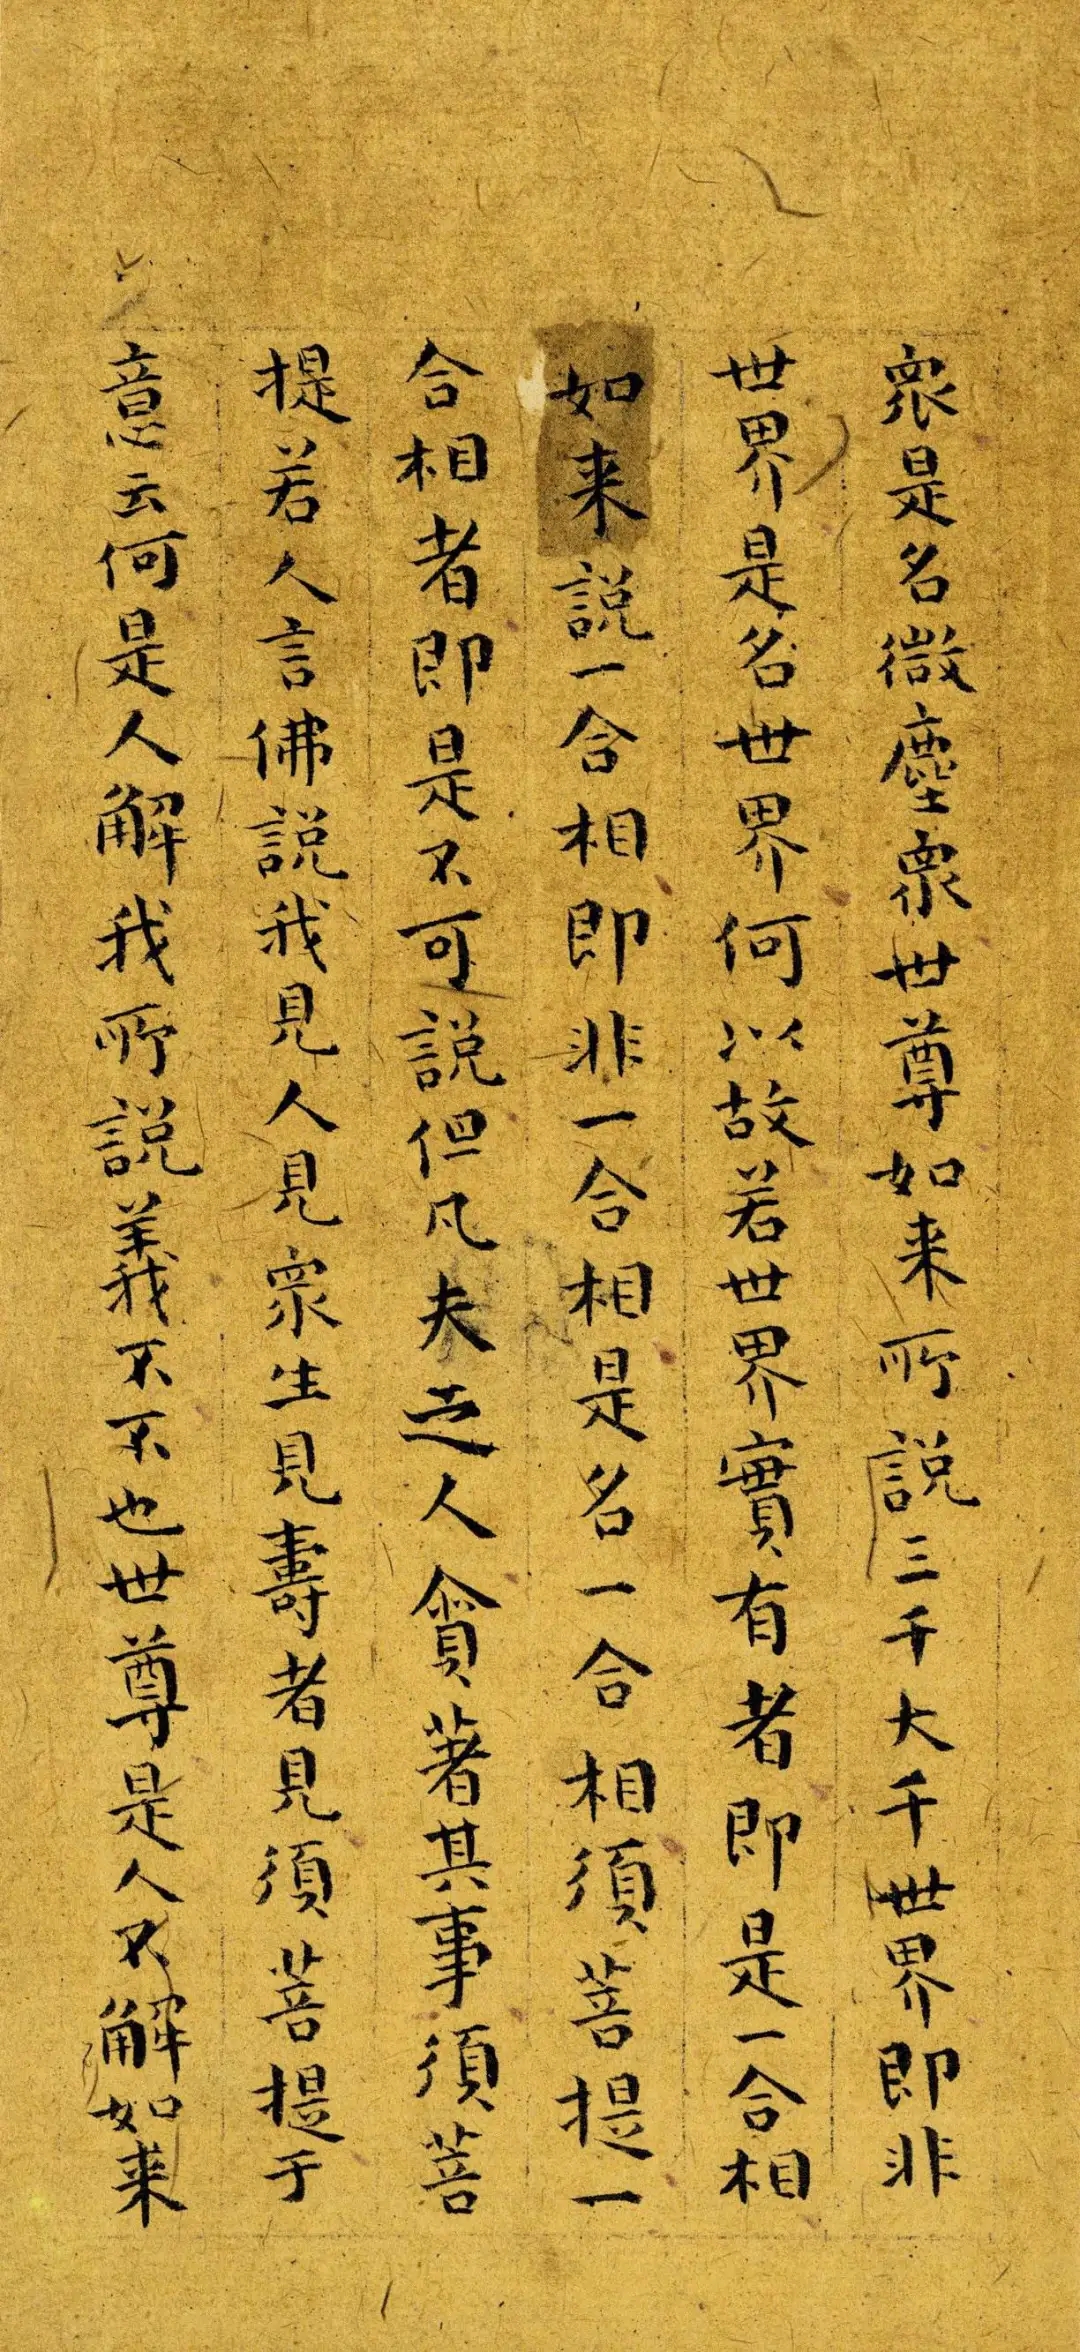 衆是名微塵衆世尊如来所説三千大千世界即非
世界是名世界何以故若世界實有者即是一合相
如来説一合相即非一合相是名一合相須菩提一
合相者即是不可說但凡夫之人貪著其事須菩
提若人言佛說我見人見衆生見壽者見須菩提于
意云何是人解我所說義不不也世尊是人不解如来